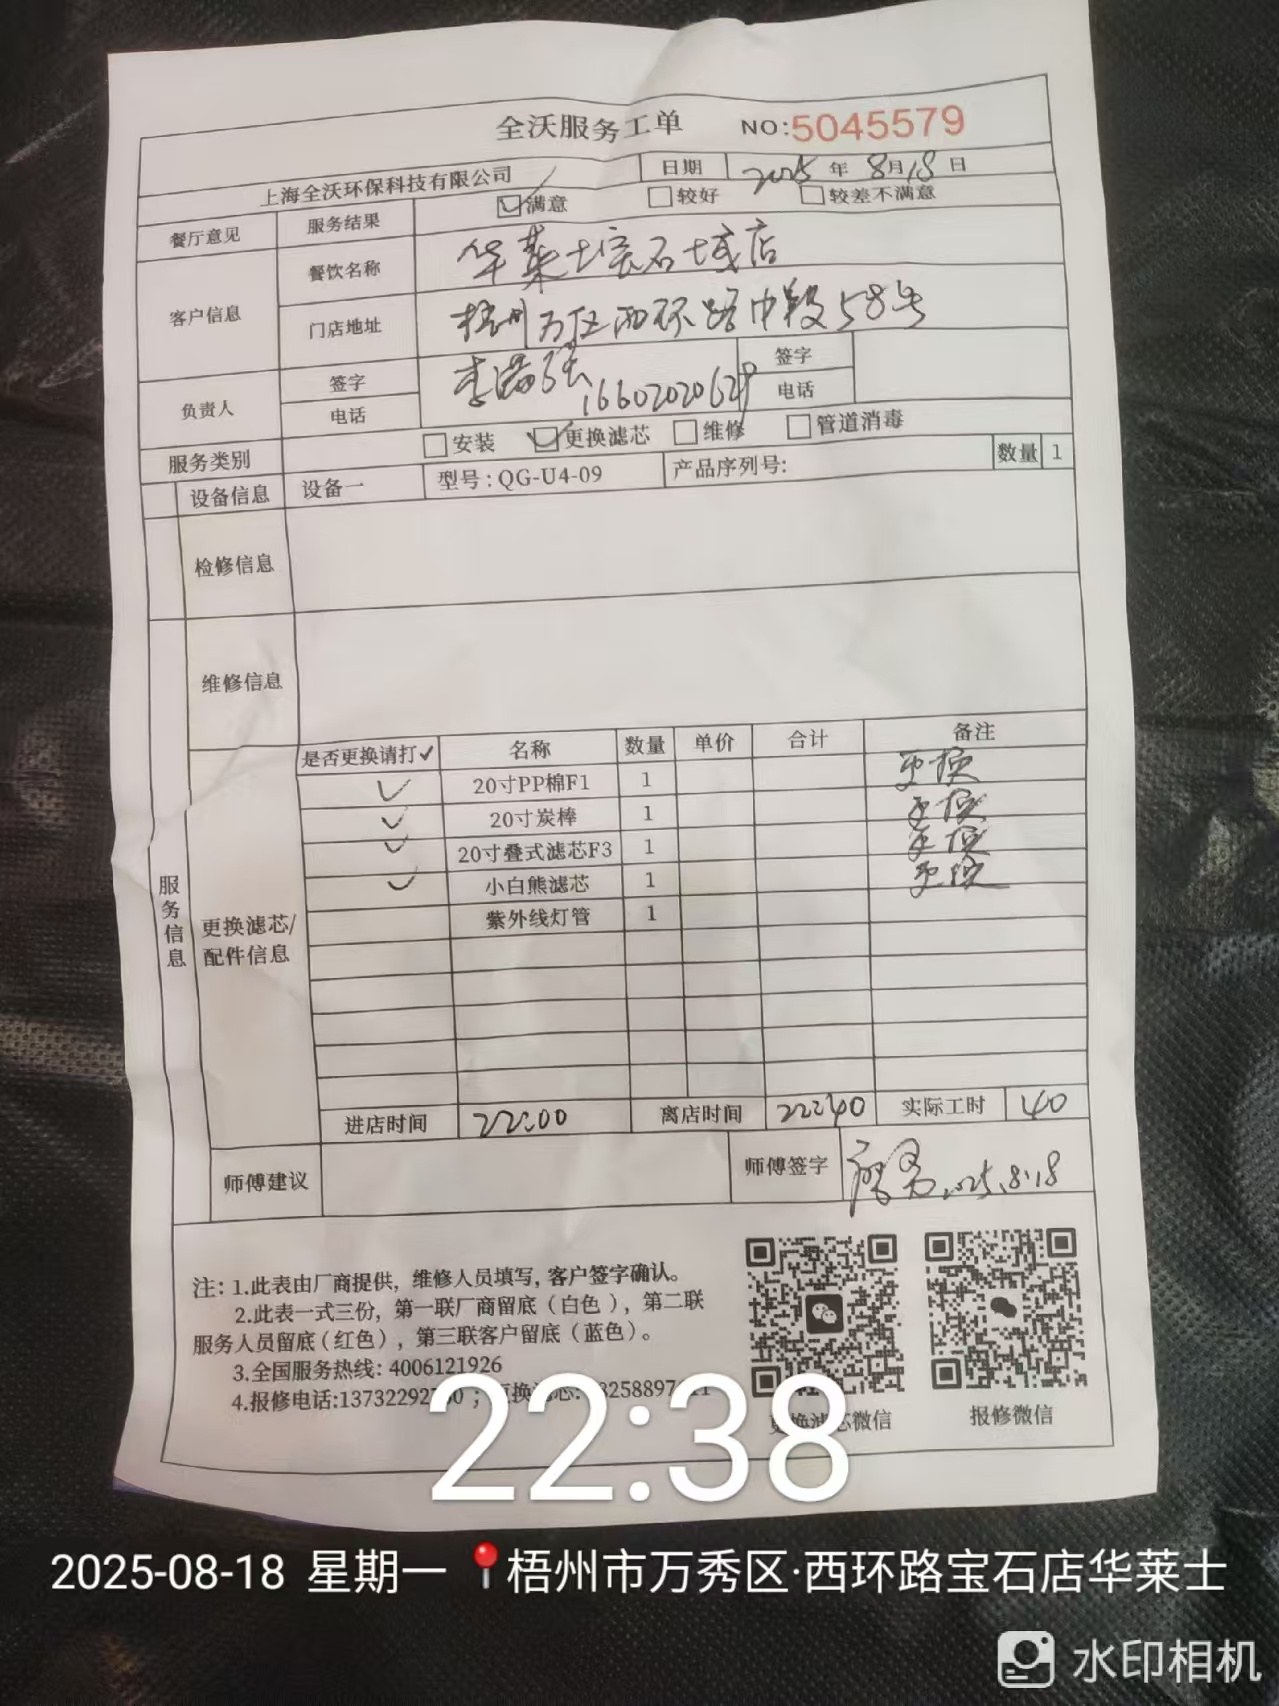 全沃服务工单 NO:5045579
上海全沃环保科技有限公司 日期 2025年8月18日
餐厅意见 服务结果 满意 较好 较差不满意
客户信息 餐饮名称 华莱士宝石城店
门店地址 梧州万区西环路中段58号
负责人 签字 签字
电话 16602020629 电话
服务类别 安装 更换滤芯 维修 管道消毒
设备信息 设备一 型号:QG-U4-09 产品序列号: 数量 1
检修信息
维修信息
服务信息
更换滤芯/配件信息
是否更换请打✓ 名称 数量 单价 合计 备注
✓ 20寸PP棉F1 1 更换
✓ 20寸炭棒 1 更换
✓ 20寸叠式滤芯F3 1 更换
✓ 小白熊滤芯 1 更换
紫外线灯管 1
进店时间 22:00 离店时间 22:40 实际工时 40
师傅建议 师傅签字 2025.8.18
注：1.此表由厂商提供，维修人员填写，客户签字确认。
2.此表一式三份，第一联厂商留底（白色），第二联
服务人员留底（红色），第三联客户留底（蓝色）。
3.全国服务热线: 4006121926
4.报修电话:
更换滤芯微信 报修微信
22:38
2025-08-18 星期一 梧州市万秀区·西环路宝石店华莱士
水印相机